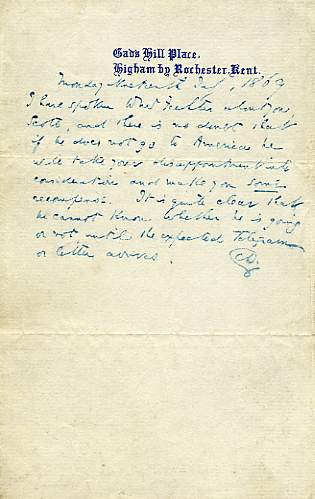 Gad's Hill Place.
Higham by Rochester, Kent.
Monday Nineteenth July, 1869
I have spoken to Mr Fechter about you
Scott, and there is no doubt that
if he does not go to America he
will take your disappointment into
consideration and make you some
recompense. It is quite clear that
he cannot know whether he is going
or not until the expected Telegram
or letter arrives.
CD.